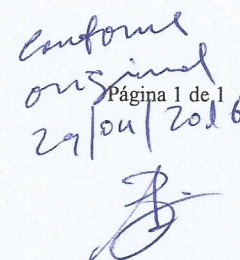 conforme
original
Página 1 de 1
29/04/2016